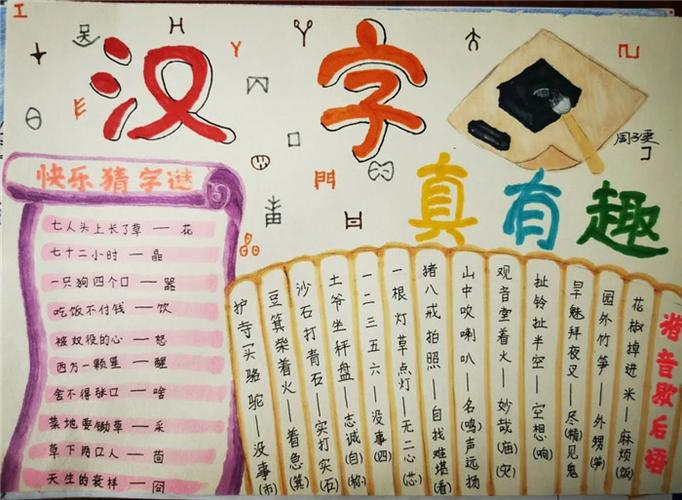 汉字
真有趣
快乐猜字谜
七人头上长了草 — 花
七十二小时 — 晶
一只狗四个口 — 器
吃饭不付钱 — 饮
被奴役的心 — 怒
西方一颗星 — 醒
舍不得张口 — 啥
菜地要锄草 — 采
草下两口人 — 茴
天生的衰样 —
谐音歇后语
花椒掉进米——麻烦(饭)
园外竹笋——外甥(笋)
旱魅拜夜叉——尽(精)见鬼
扯铃扯半空——空想(响)
观音堂着火——妙哉(庙)(灾)
山中吹喇叭——名(鸣)声远扬
猪八戒拍照——自找难堪(看)
一根灯草点灯——无二心(芯)
一二三五六——没事(四)
土爷坐秤盘——志诚(自)(称)
沙石打青石——实打实(石)
豆箕柴着火——着急(箕)
护寺一头骆驼——没事(市)